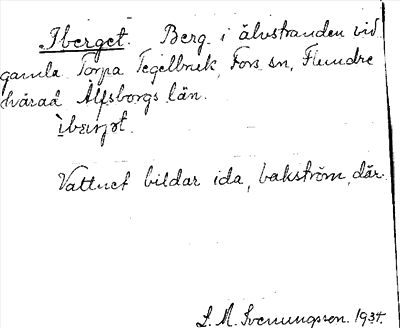 Iberget. Berg i älvstranden vid
gamla Torpa Tegelbruk, Fors sn, Flundre
härad Älfsborgs län.
Vattnet bildar ida, bakström, där.
L. M. Svenungsson. 1934.